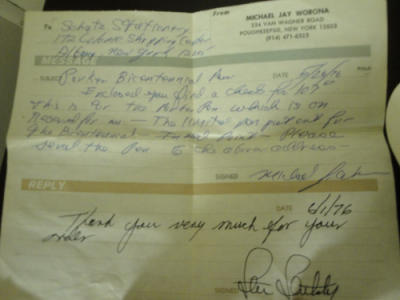 From MICHAEL JAY WORONA
234 VAN WAGNER ROAD
POUGHKEEPSIE, NEW YORK 12603
(914) 471-6525
To Schatz Stationery
Shopping Center
Albany New York
MESSAGE
DATE 5/26/76
Subject Parker Bicentennial Pen
Enclosed you find a check for
This is for the Parker Pen which is on
Reserve for me — The limited pen put out for
the Bicentennial — Point — Please
send the Pen to the above address —
SIGNED Michael
REPLY
DATE 6/1/76
Thank you very much for your
order
SIGNED